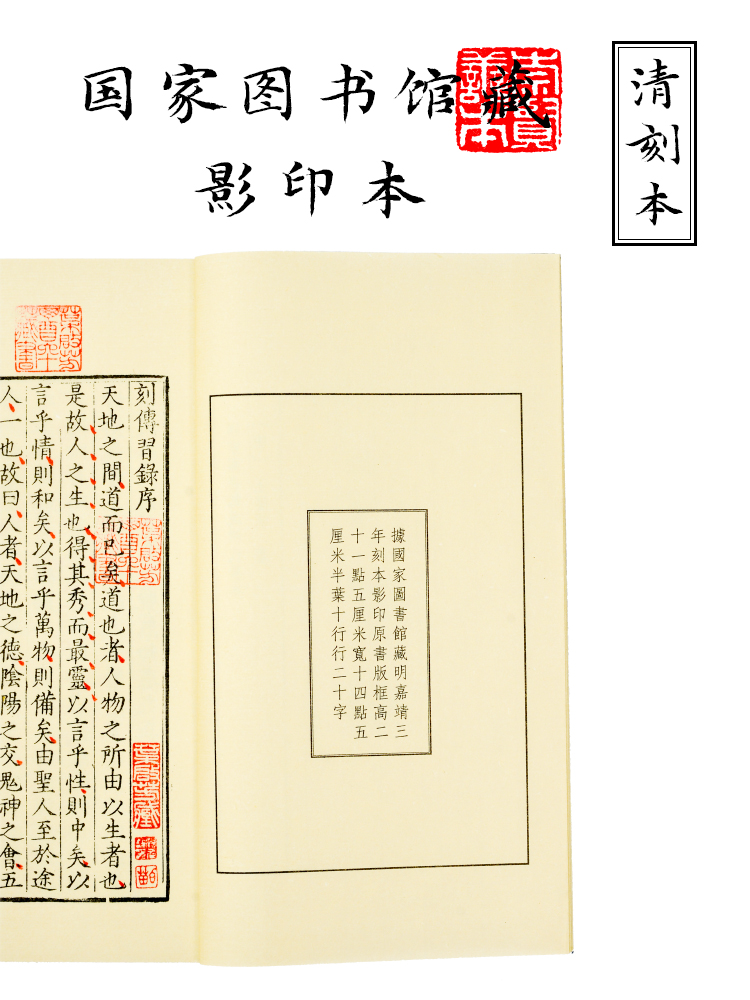 国家图书馆藏
影印本
清刻本
據國家圖書館藏明嘉靖三
年刻本影印原書版框高二
十一點五厘米寬十四點五
厘米半葉十行行二十字
刻傳習錄序
天地之間道而已矣道也者人物之所由以生者也
是故人之生也得其秀而最靈以言乎性則中矣以
言乎情則和矣以言乎萬物則備矣由聖人至於途
人一也故曰人者天地之德陰陽之交鬼神之會五